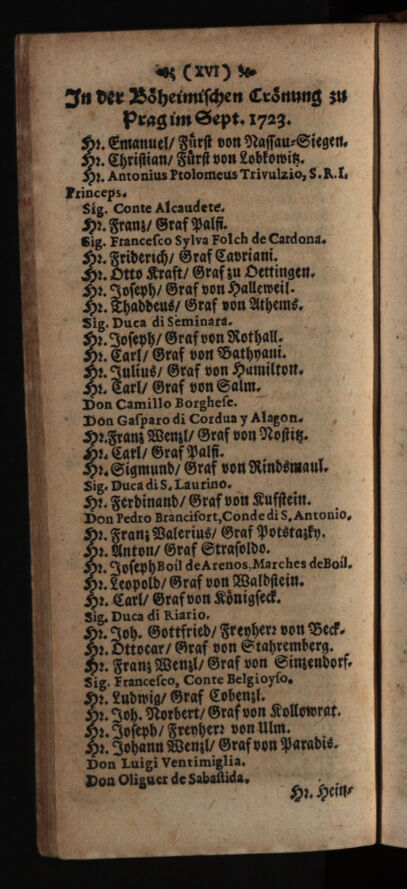 (XVI)
In der Böheimischen Crönung zu
Prag im Sept. 1723.
Hr. Emanuel/ Fürst von Nassau-Siegen.
Hr. Christian/ Fürst von Lobkowitz.
Hr. Antonius Ptolomeus Trivulzio, S.R.I.
Princeps.
Sig. Conte Alcaudete.
Hr. Franz/ Graf Palfi.
Sig. Francesco Sylva Folch de Cardona.
Hr. Friderich/ Graf Cavriani.
Hr. Otto Kraft/ Graf zu Oettingen.
Hr. Joseph/ Graf von Halleweil.
Hr. Thaddeus/ Graf von Athems.
Sig. Duca di Seminara.
Hr. Joseph/ Graf von Rothall.
Hr. Carl/ Graf von Bathyani.
Hr. Julius/ Graf von Hamilton.
Hr. Carl/ Graf von Salm.
Don Camillo Borghese.
Don Gasparo di Cordua y Alagon.
Hr. Franz Wenzl/ Graf von Nostitz.
Hr. Carl/ Graf Palfi.
Hr. Sigmund/ Graf von Rindsmaul.
Sig. Duca di S. Laurino.
Hr. Ferdinand/ Graf von Kufstein.
Don Pedro Brancifort, Conde di S. Antonio.
Hr. Franz Valerius/ Graf Potstazky.
Hr. Anton/ Graf Strasoldo.
Hr. Joseph Boil de Arenos, Marches de Boil.
Hr. Leopold/ Graf von Waldstein.
Hr. Carl/ Graf von Königseck.
Sig. Duca di Riario.
Hr. Joh. Gottfried/ Freyherr von Beck.
Hr. Ottocar/ Graf von Stahremberg.
Hr. Franz Wenzl/ Graf von Sinzendorf.
Sig. Francesco, Conte Belgioyso.
Hr. Ludwig/ Graf Cobenzl.
Hr. Joh. Norbert/ Graf von Kollowrat.
Hr. Joseph/ Freyherr von Ulm.
Hr. Johann Wenzl/ Graf von Paradis.
Don Luigi Ventimiglia.
Don Oliguer de Sabastida.
Hr. Hein-